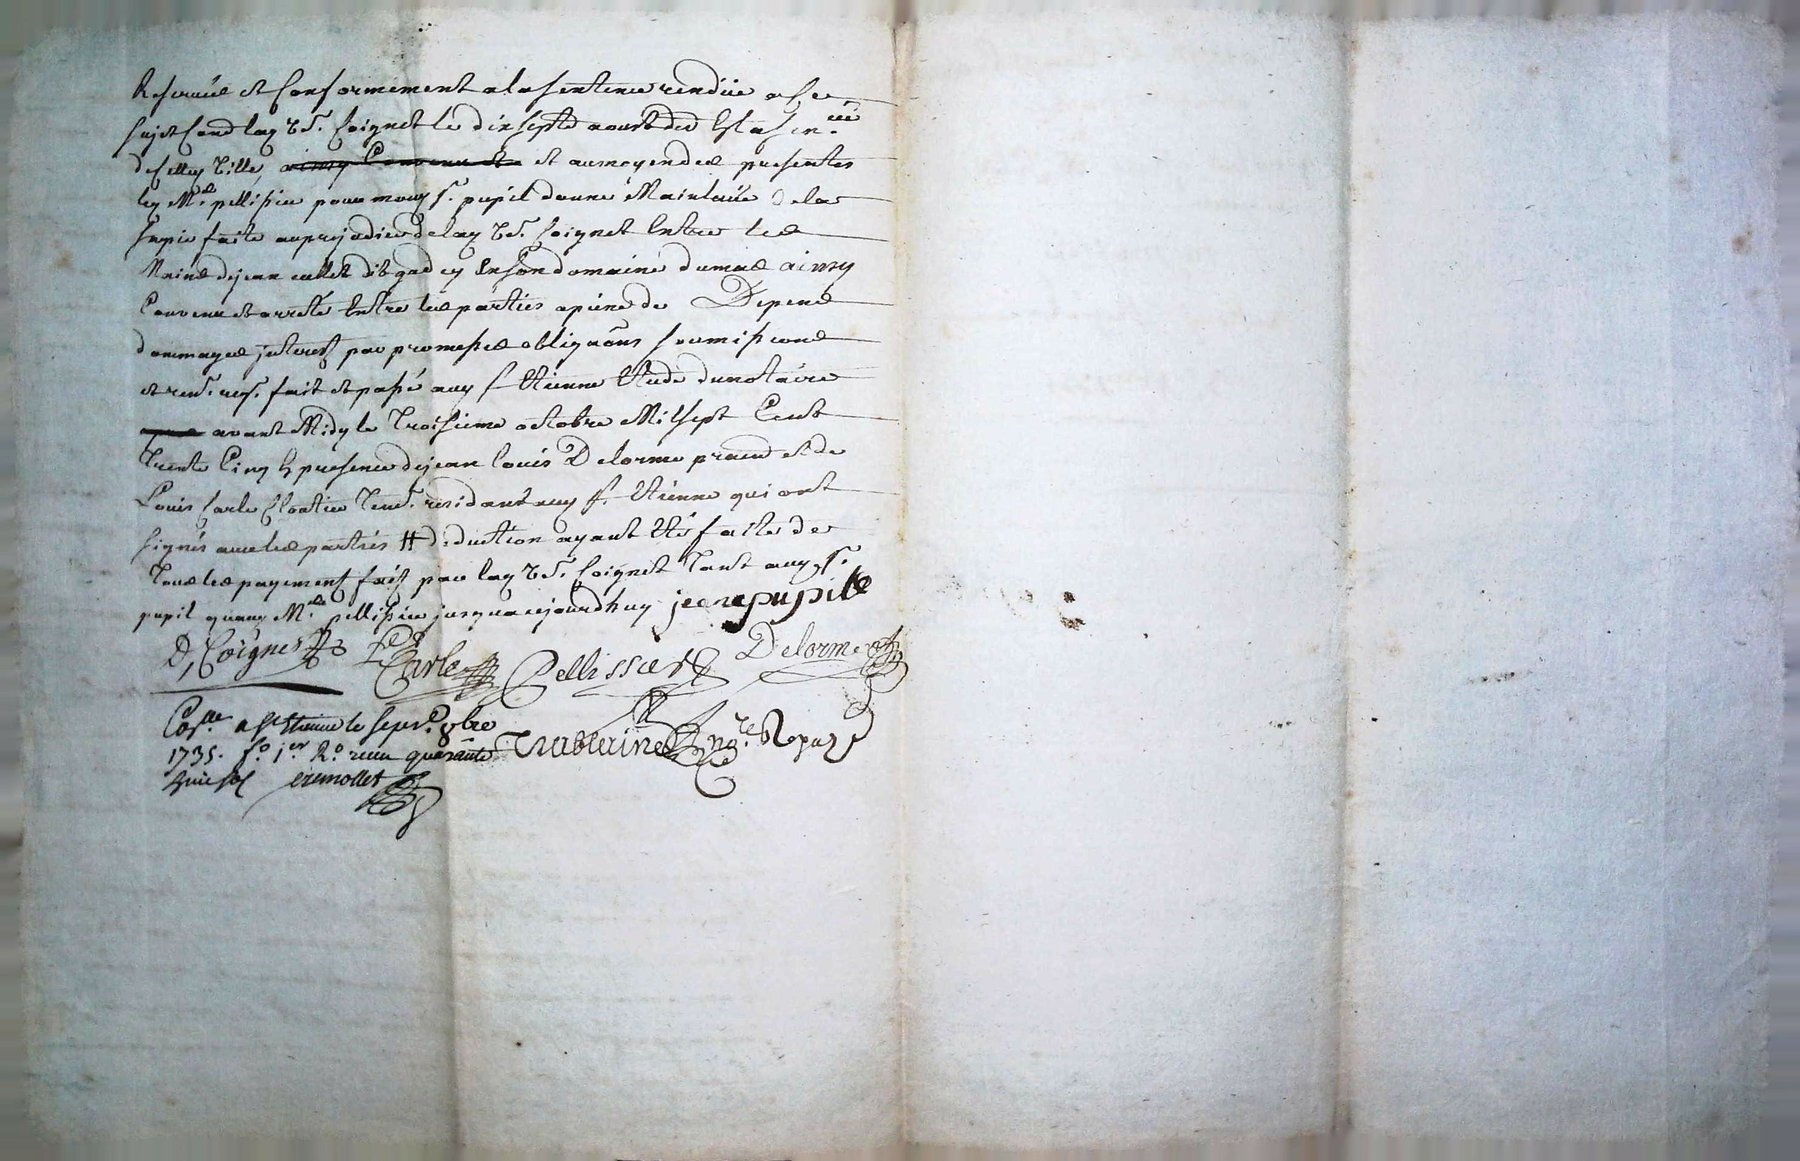 Reservée et Conformement a la sentence rendüe a ce
sujet Cond. lad. Coignet le dix sept aoust der
de cette ville, ainsy Convenu et et au moyen des presentes
led. Me. pellissier pour mond. sr. pupil donne Mainlevée de la
sepie faite au prejudice de lad. Coignet Entre les
Mains de jean en son domaine dumas ainsy
Convenu et arreté Entre les parties a peine de Depens
dommages interest par promesses obligaõns soumissions
et ren. fait et passé aud. st Etienne Etude du notaire
avant Midy le Troisieme octobre Mil sept Cent
Trente Cinq En presence de jean Louis Delorme et de
Louis Carle residant aud. st. Etienne qui ont
signés avec les parties # deduction ayant Eté faite de
Tous les payements fait par lad. Coignet Tant aud. sr.
pupil qu'aud. Me. pellissier jusqua cejourdhuy jean pupil
D, Coignet Carle Pellissier Delorme
Colle. a st Etienne le sept. 8bre
1735. fo. 1er Ro. receu quarante Trablaine nore. Royal
huit sol cremollet